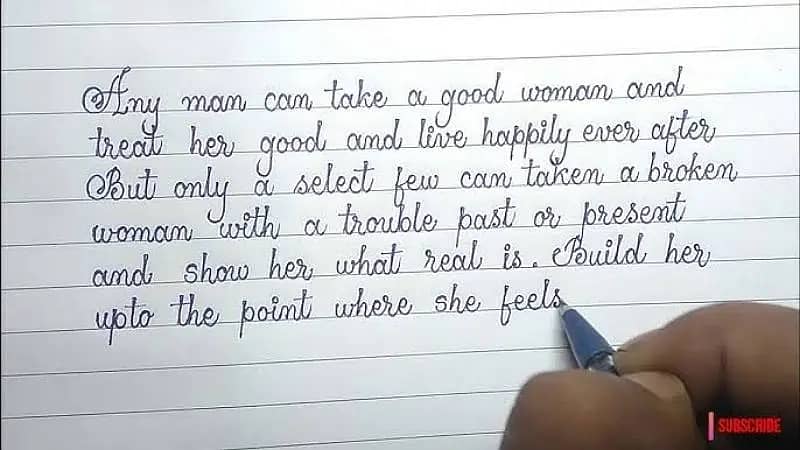 Any man can take a good woman and
treat her good and live happily ever after
But only a select few can taken a broken
woman with a trouble past or present
and show her what real is. Build her
upto the point where she feels
SUBSCRIBE